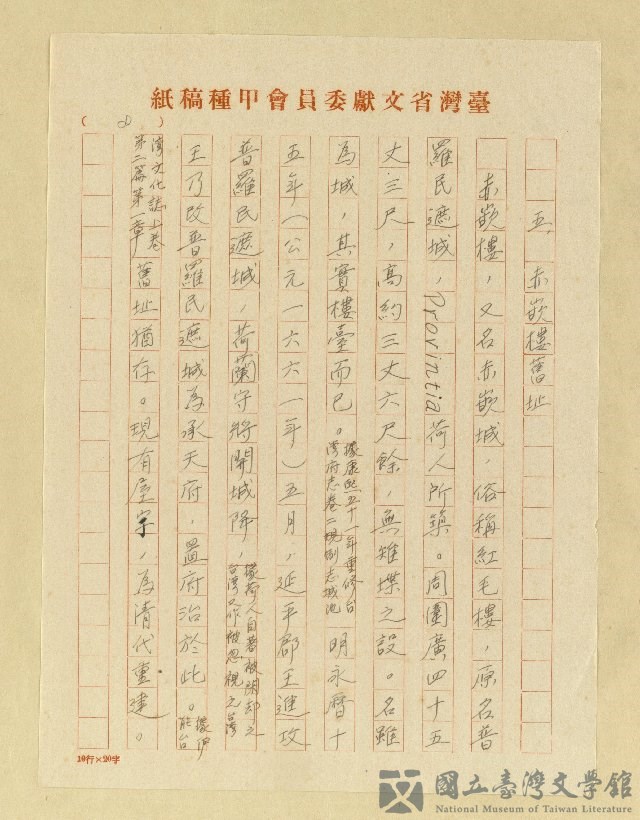 紙稿種甲會員委獻文省灣臺
五、赤嵌樓舊址
赤嵌樓，又名赤嵌城，俗稱紅毛樓，原名普
羅民遮城，Provintia荷人所築。周圍廣四十五
丈三尺，高約三丈六尺餘，無雉堞之設。名雖
為城，其實樓臺而已。據康熙五十一年重修台灣府志卷二規制志城池 明永曆十
五年（公元一六六一年）五月，延平郡王進攻
普羅民遮城，荷蘭守將開城降，據荷人自著被忽視之台灣
王乃改普羅民遮城為承天府，置府治於此。據伊能台
灣文化誌上卷第二篇第一章 舊址猶存。現有屋宇，為清代重建。
10行×20字
國立臺灣文學館
National Museum of Taiwan Literature